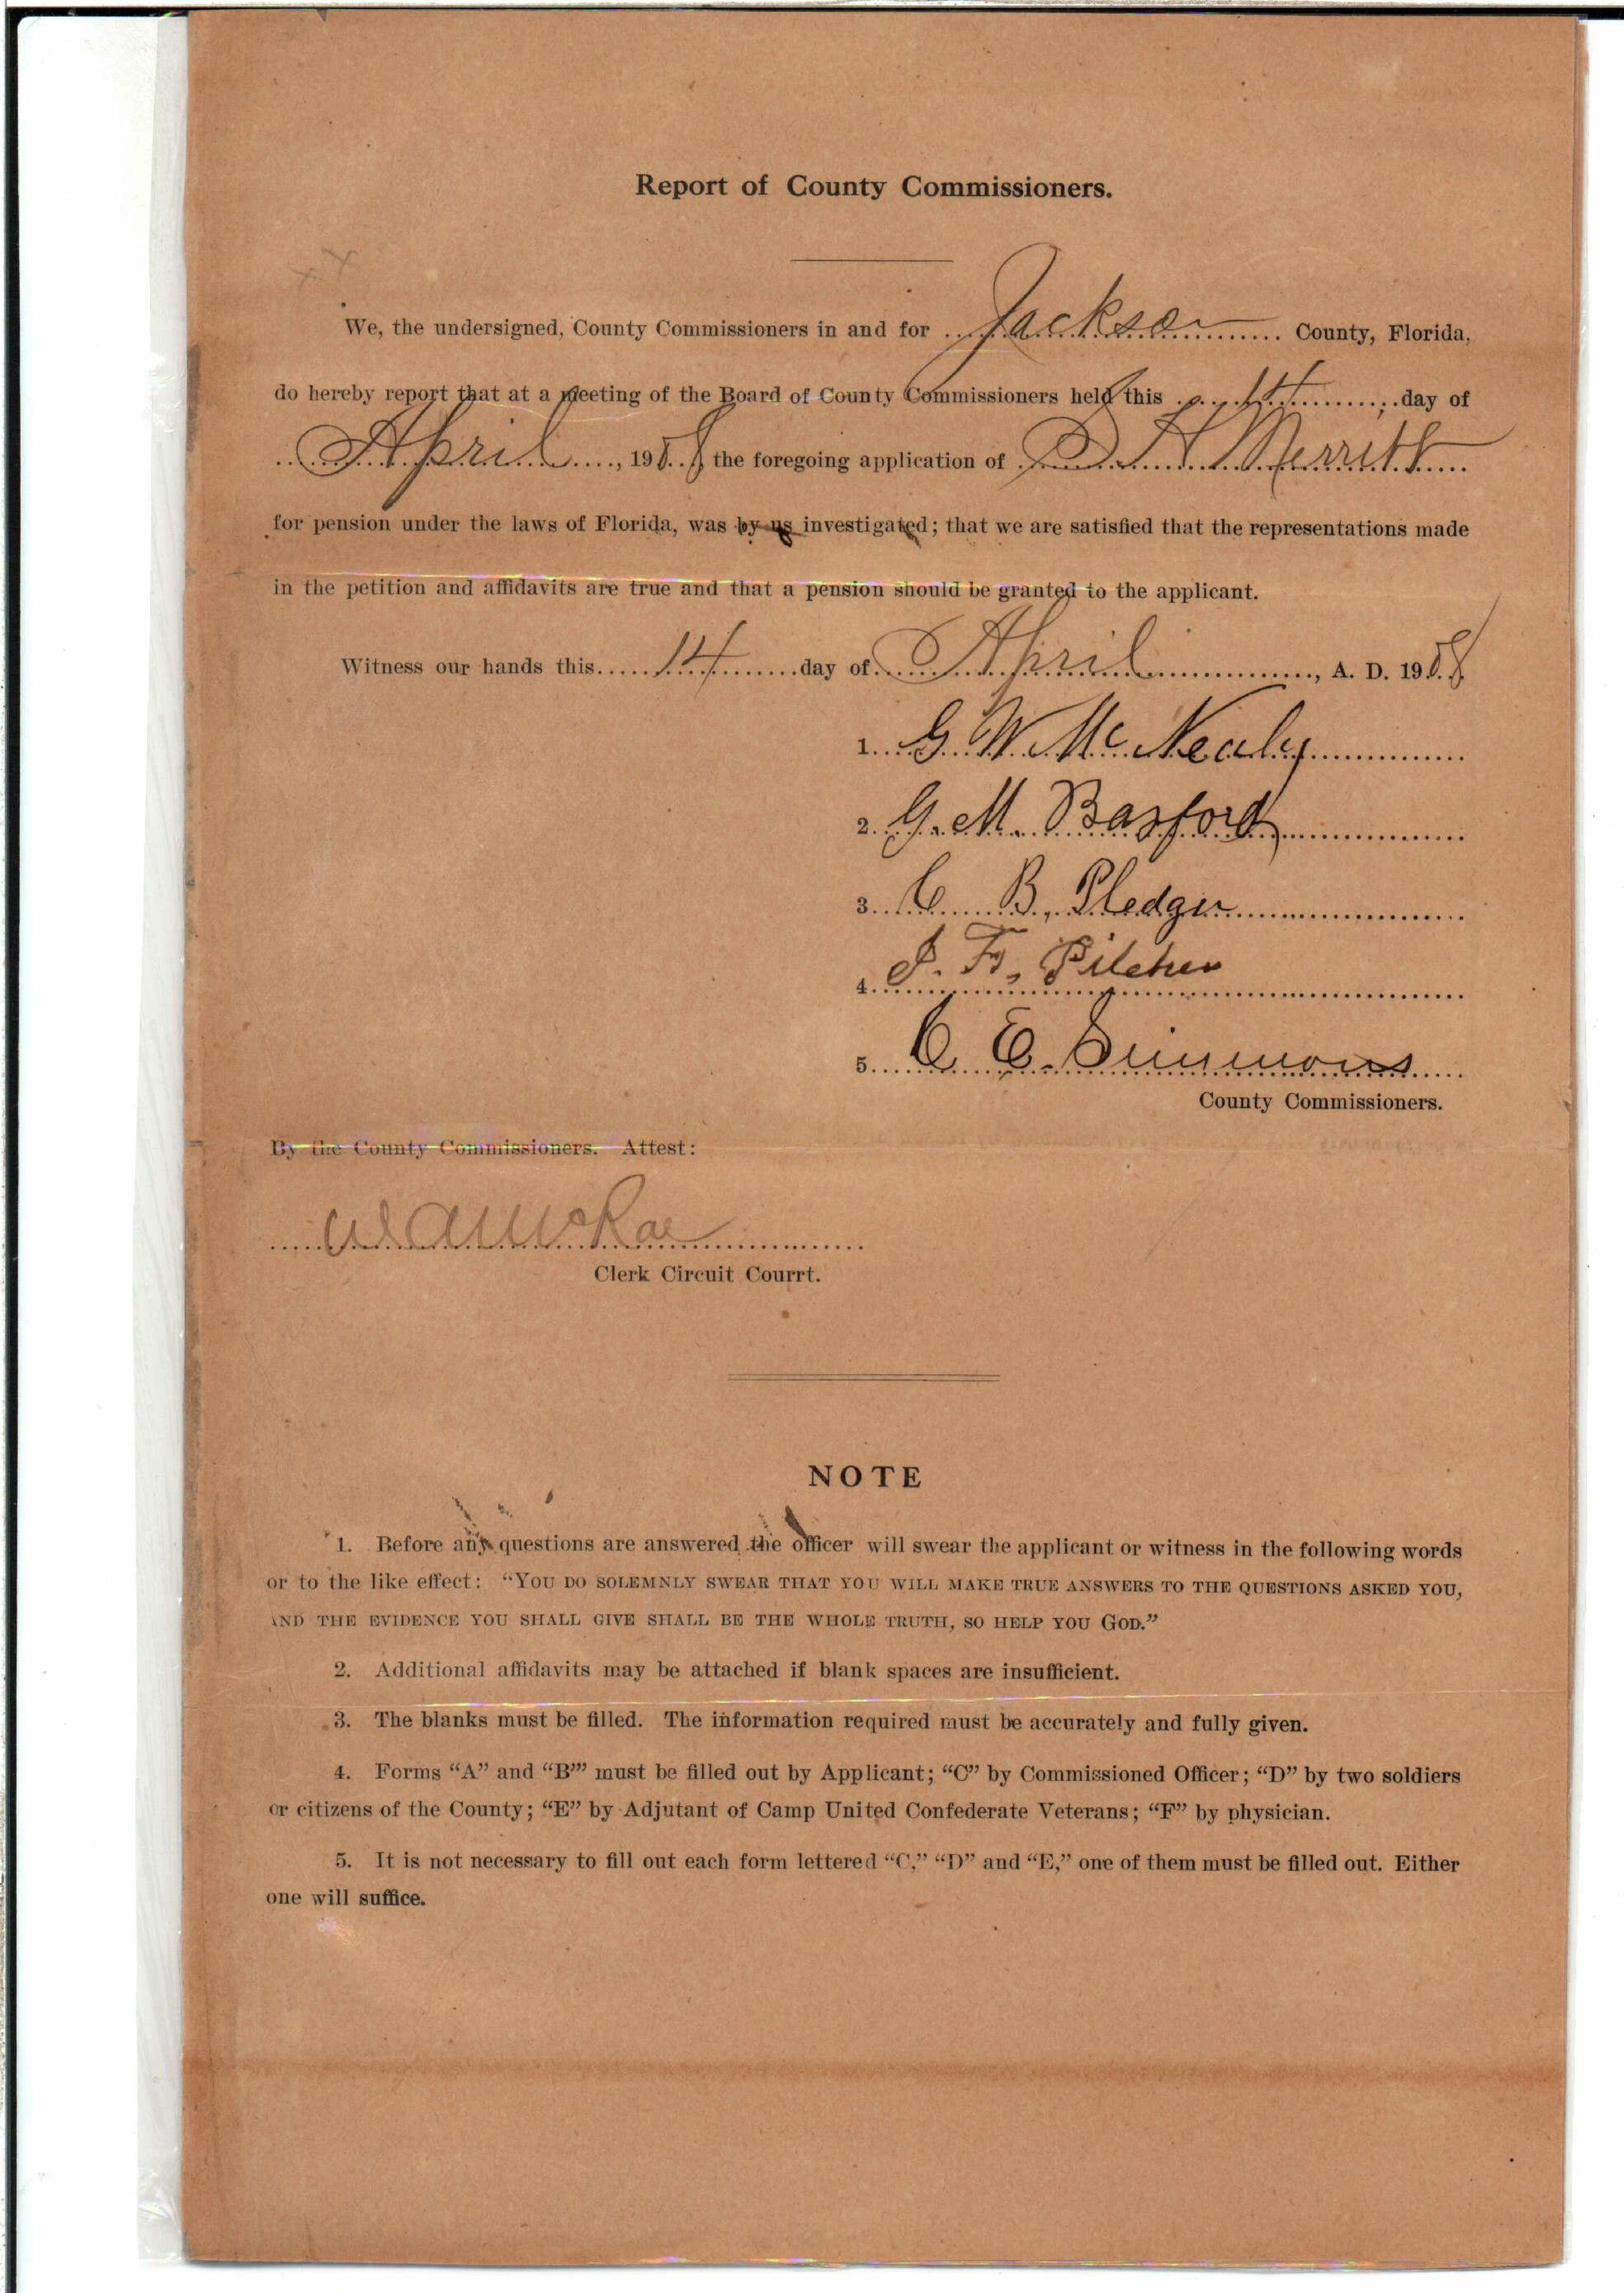 Report of County Commissioners.
We, the undersigned, County Commissioners in and for Jackson County, Florida,
do hereby report that at a meeting of the Board of County Commissioners held this 14 day of
April, 1908 the foregoing application of D. H. Merritt
for pension under the laws of Florida, was by us investigated; that we are satisfied that the representations made
in the petition and affidavits are true and that a pension should be granted to the applicant.
Witness our hands this 14 day of April, A. D. 1908
1. G. W. McNealy
2. G. M. Basford
3. C. B. Pledger
4. J. F. Pilcher
5. C. E. Simmons
County Commissioners.
By the County Commissioners. Attest:
W A McRae
Clerk Circuit Courrt.
NOTE
1. Before any questions are answered the officer will swear the applicant or witness in the following words
or to the like effect: “YOU DO SOLEMNLY SWEAR THAT YOU WILL MAKE TRUE ANSWERS TO THE QUESTIONS ASKED YOU,
AND THE EVIDENCE YOU SHALL GIVE SHALL BE THE WHOLE TRUTH, SO HELP YOU GOD.”
2. Additional affidavits may be attached if blank spaces are insufficient.
3. The blanks must be filled. The information required must be accurately and fully given.
4. Forms “A” and “B”’ must be filled out by Applicant; “C” by Commissioned Officer; “D” by two soldiers
or citizens of the County; “E” by Adjutant of Camp United Confederate Veterans; “F” by physician.
5. It is not necessary to fill out each form lettered “C,” “D” and “E,” one of them must be filled out. Either
one will suffice.